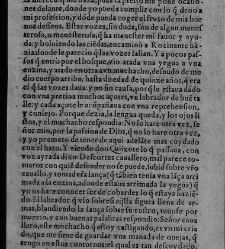 la merced q̃ me haze, pues ta presto me pone ocasio-
nes delante, dõde yo pueda cumplir con lo q̃ deuo a
mi profession, y dõde pueda coger el fruto de mis bue
nos desseos. Estas vozes, sin duda, son de algun menes
teroso, o menesterosa, q̃ ha menester mi fauor y ayu-
da: y boluiendo las riẽdas, encaminò a Rozinante hà
zia dõde le pareciò q̃ las vozes salian. Y a pocos pas-
sos q̃ entrò por el bosque, vio atada vna yegua a vna
enzina, y atado en otra vn muchacho, desnudo de me
dio cuerpo arriba, hasta de edad de quinze años, que era
el q̃ las vozes daua, y no sin causa, porq̃ le estaua dãdo
con vna pretina muchos açotes, vn labrador de buẽ ta
lle: y cada açote le acõpañaua con vna reprehension,
y consejo. Porque dezia, la lengua queda, y los ojos li
stos, y el muchacho respondia: No lo harè otra vez, se
ñor mio, por la passion de Dios, q̃ no lo harè otra vez,
y yo prometo de tener de aqui adelãte mas cuydado
con el hato. Y viendo don Quixote lo q̃ passaua, con
voz ayrada dixo: Descortes cauallero, mal parece to-
maros con quiẽ defender no se puede, subid sobre vr̃o
cauallo, y tomad vr̃a lança (q̃ tãbien tenia vna lãça arri
mada a la enzina, adonde estaua arrimada la yegua) q̃
yo os harè conocer ser de cobardes lo q̃ estays haziẽ-
do. El labrador q̃ vio sobre si aq̃lla figura llena de ar-
mas, blandiẽdo la lança sobre su rostro, tuuose por
muerto, y con buenas palabras respondio: Señor caua
llero, este muchacho q̃ estoy castigando, es vn mi cria
do, que me sirue de guardar vna manada de ouejas, q̃
tengo en estos contornos, el qual es tan descuydado